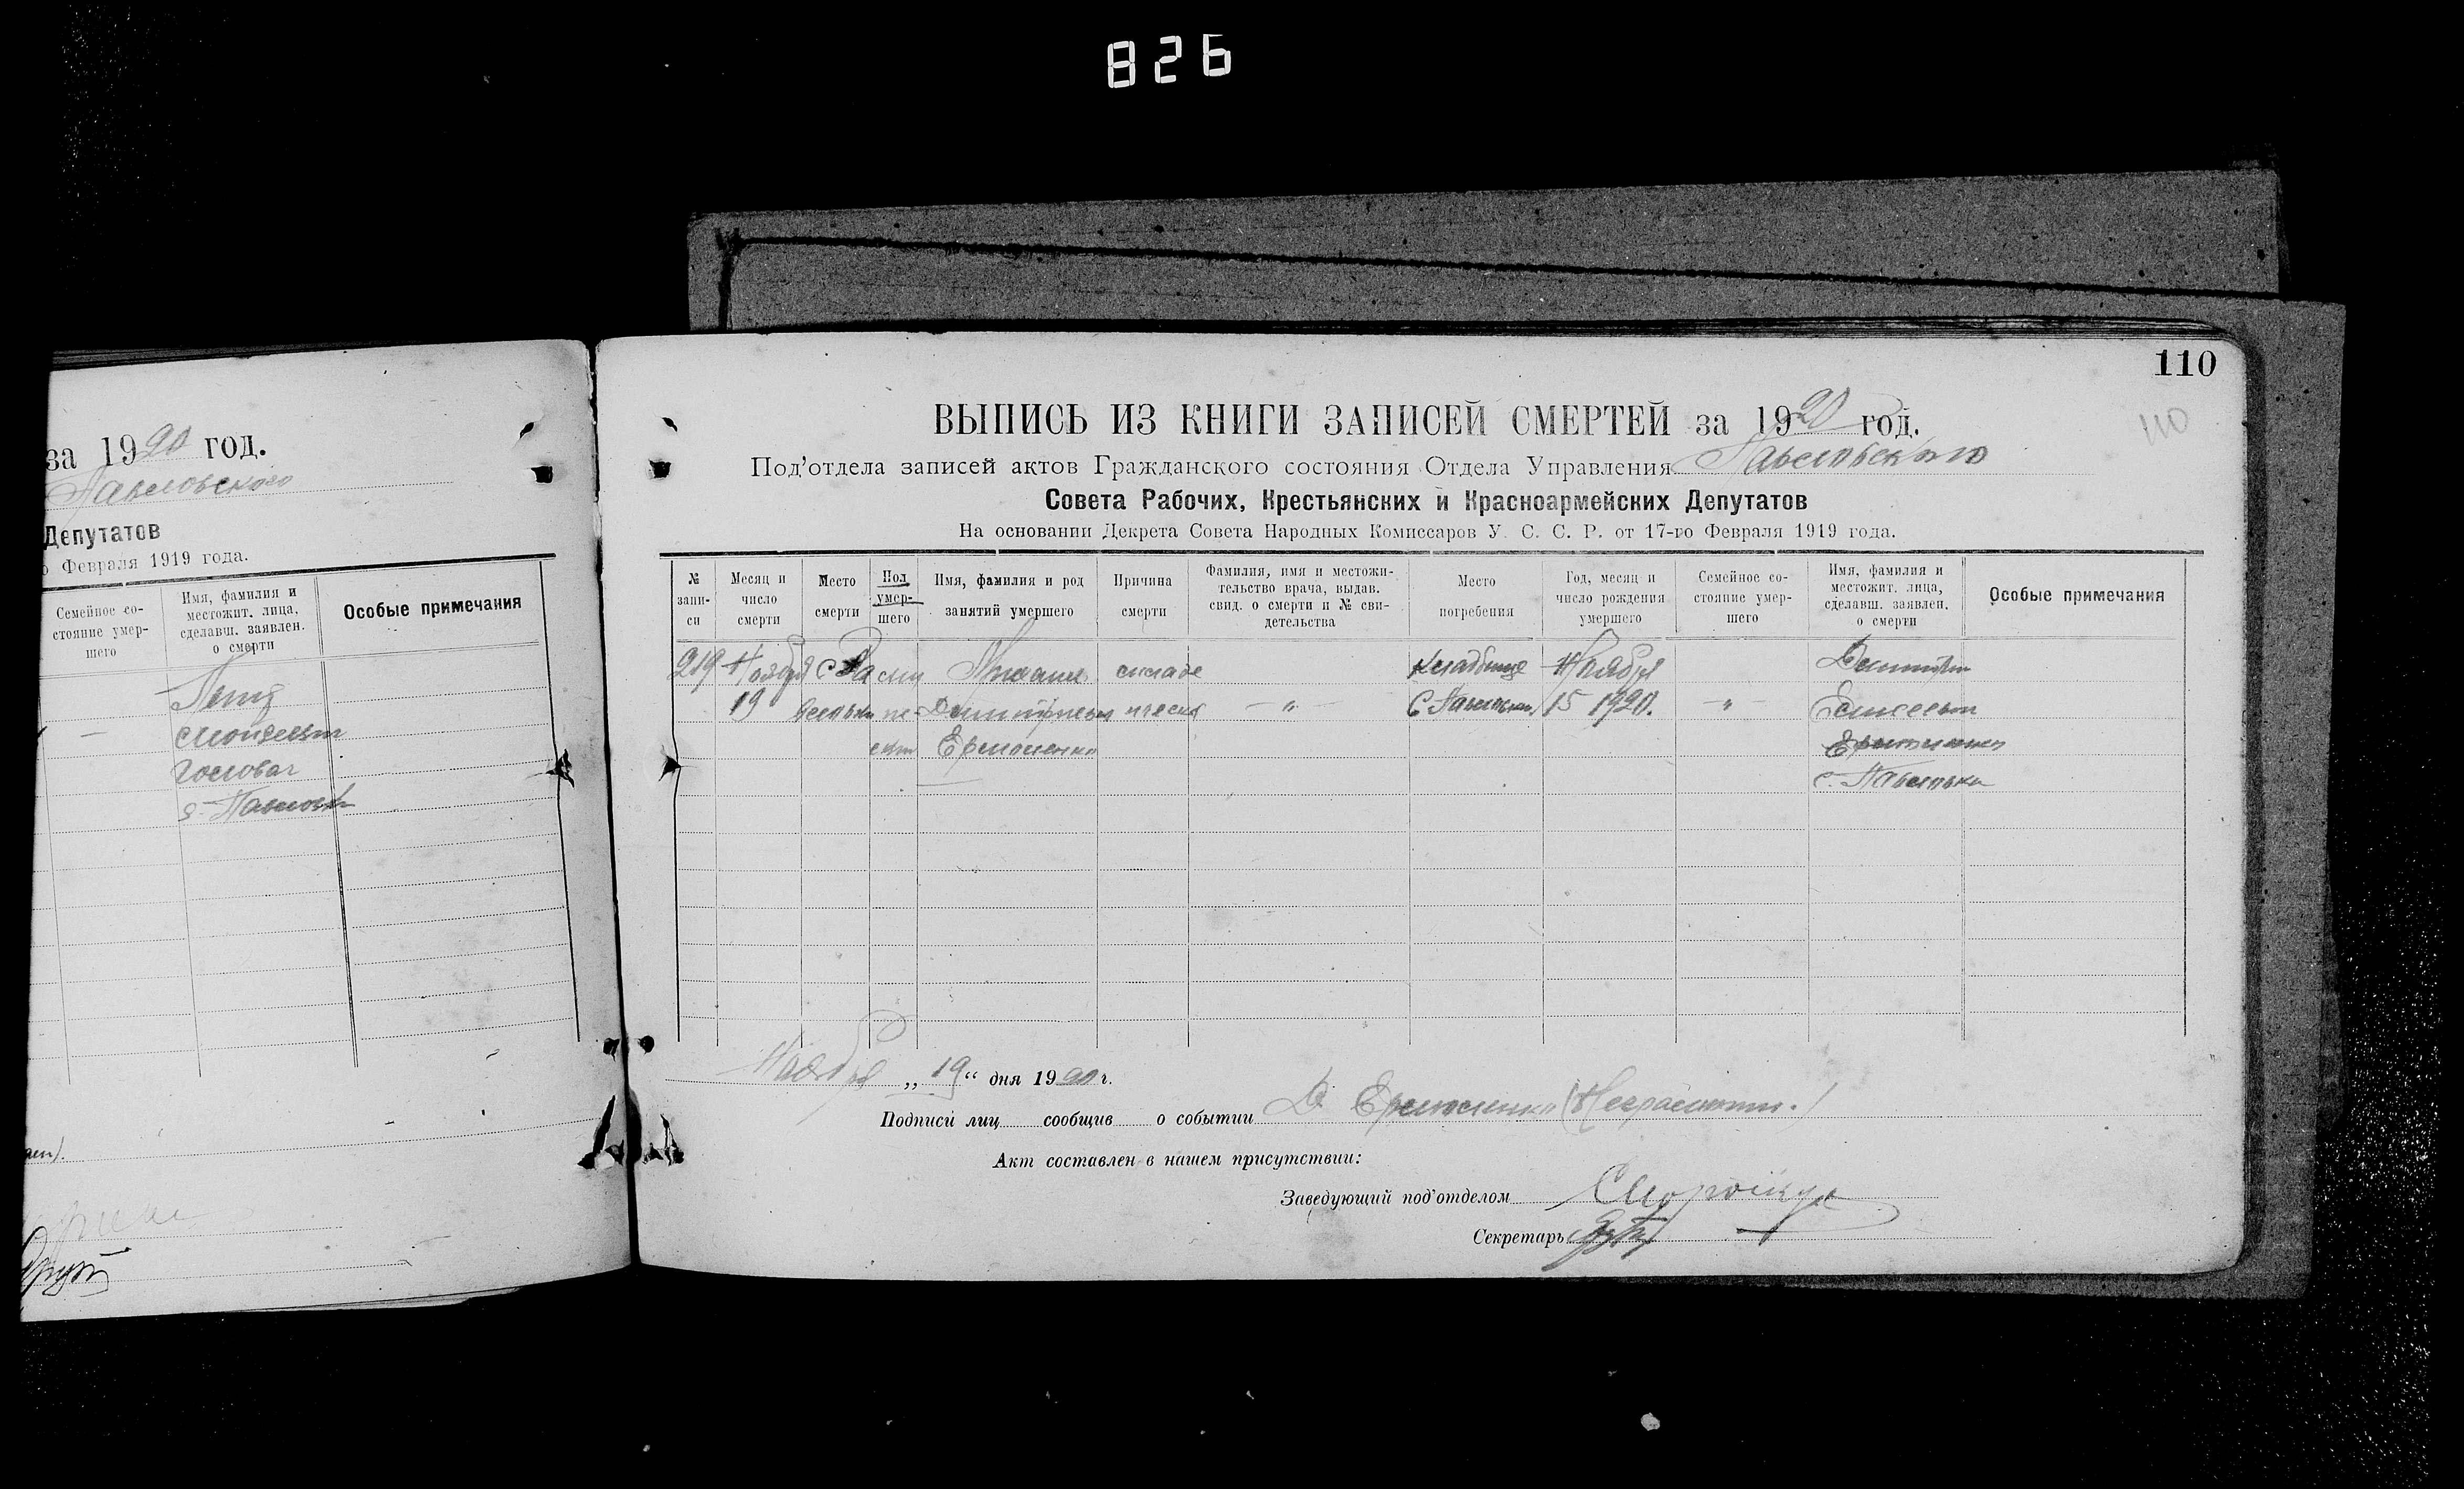 826
за 1920 год.
Павловского
Депутатов
Февраля 1919 года.
Семейное со-
стояние умер-
шего
Имя, фамилия и
местожит. лица,
сделавш. заявлен.
о смерти
Особые примечания
Головач
с. Павловки
110
110
ВЫПИСЬ ИЗ КНИГИ ЗАПИСЕЙ СМЕРТЕЙ за 1920 год.
Под'отдела записей актов Гражданского состояния Отдела Управления Павловского
Совета Рабочих, Крестьянских и Красноармейских Депутатов
На основании Декрета Совета Народных Комиссаров У. С. С. Р. от 17-го Февраля 1919 года.
№
запи-
си
Месяц и
число
смерти
Место
смерти
Пол
умер-
шего
Имя, фамилия и род
занятий умершего
Причина
смерти
Фамилия, имя и местожи-
тельство врача, выдав.
свид. о смерти и № сви-
детельства
Место
погребения
Год, месяц и
число рождения
умершего
Семейное со-
стояние умер-
шего
Имя, фамилия и
местожит. лица,
сделавш. заявлен.
о смерти
Особые примечания
219
Ноября
19
с Па
вловки
Дмитриевич
Ермоленко
— „ —
Кладбище
с Павловки
Ноября
15 1920.
— „ —
Дмитрий
Ермоленко
с. Павловки
Ноября „ 19 “ дня 1920 г.
Подписи лиц сообщив о событии Д Ермоленко (Неграмотн.)
Акт составлен в нашем присутствии:
Заведующий под'отделом
Секретарь